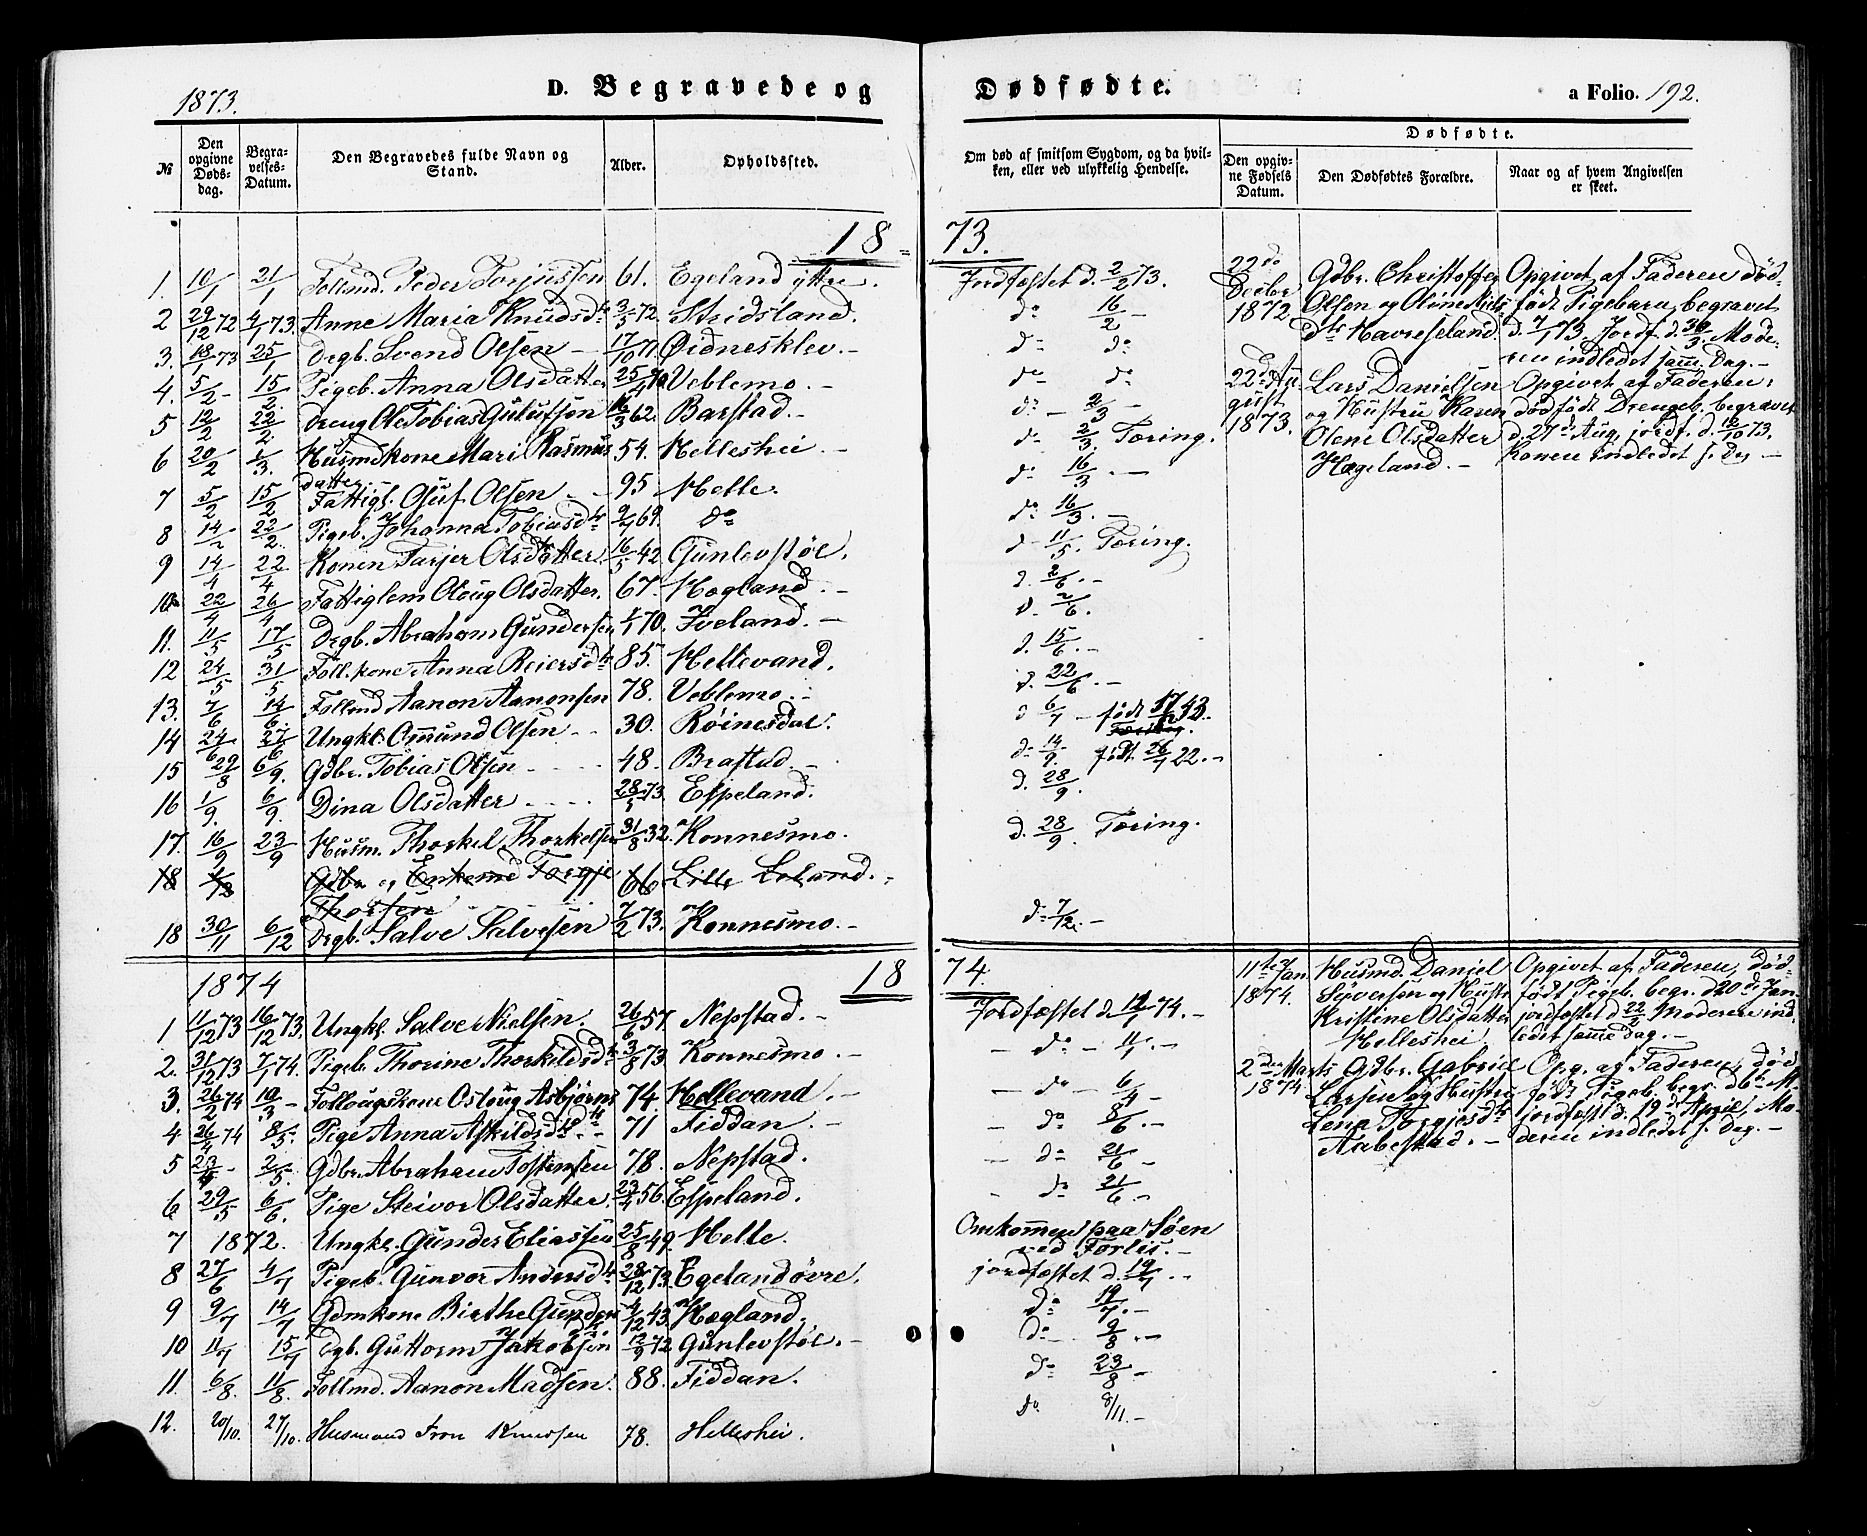 1873.
D. Begravede og
Dødfødte.
a Folio. 192.
№
Den opgivne Dødsdag.
Begravelses-Datum.
Den Begravedes fulde Navn og Stand.
Alder.
Opholdssted.
Om død af smitsom Sygdom, og da hvilken, eller ved ulykkelig Hendelse.
Dødfødte.
Den opgivne Fødsels Datum.
Den Dødfødtes Forældre.
Naar og af hvem Angivelsen er skeet.
18 73.
1. 10/1 21/1 Follmd. Peder Torjussen 61. Egeland ÿttre. Jordfæstet d. 2/2 73.
2 29/12 72 4/1 73. Anne Maria Knudsdtr 3/5 72. Stridsland. do 16/2 –
3. 18/1 73 25/1 Drgb. Svend Olsen – 17/10 71. Øidnesklev. – do do
4. 5/2 – 15/2. Pigeb. Anna Olsdatter Veblemo. – do do
5 12/2 22/2. Dreng Ole Tobias Guttufsøn 62. Barstad. – do – 2/3 –
6 20/2 1/3. Husmdkone Mari Rasmusdatter 54. Helleshei. – do 2/3. Tæring.
7 5/2 15/2 Fattigl. Oluf Olsen – 95 Helle. do 16/3. –
8 14/2 22/2. Pigeb. Johanna Tobiasdtr 69. do do 16/3. –
9 14/4 22/4 Konen Tarjer Olsdatter 16/5 42 Gunlevstøl. d – 11/5. Tæring.
10 22/4 26/4 Fattiglem Oloug Olsdatter. 67. Hægland. – d. 2/6. –
11. 11/5 17/5 Drgb. Abraham Gundersen 1/1 70. Iveland. – d. 2/6.
12 24/5 31/5 Foll.kone Anna Reiersdtr 85. Hellevand. d. 15/6. –
13. 7/6 14/6. Follmd Aanon Aanonsen 78. Veblemo. – d. 22/6. –
14 24/6 27/6 Ungkl. Omund Olsen – – 30. Røinesdal. d 6/7 – født 43.
15 29/8 6/9. Gdbr. Tobias Olsen 48. Brastad. – d. 14/9. født 26/7 22. –
16 1/9. 6/9. Dina Olsdatter 28/1 73. Espeland. d. 28/9.
17. 16/9 23/9 Husm. Thorkel Thorkelsen 31/8 32. Konnesmo. d. 28/9. Tæring.
18 Gdbr og Enkemd Torgje Thorsen 66 Lille Loland.
18 30/11 6/12 Drgb. Salve Salvesen 7/2 73. Konnesmo. – d. 7/12. –
22do Decbr 1872 Gdbr. Christoffer Olsen og Oline Nielsdtr Havreseland. Opgivet af Faderen dødfødt Pigebarn, begravet d. 7/1 73. Jordf. d. 30/3. Moderen indledet samme Dag. –
22de August 1873. Lars Danielsen og Hustru Karen Olene Olsdatter Hægeland. – Opgivet af Faderen, dødfødt Drengeb. begravet d. 27de Aug. jordf. d. 12/10 73. Konen indledet s. Dag –
1874
18 74.
1 11/12 73 16/12 73. Ungkl. Salve Nielsen. 26/6 57. Nepstad. – Jordfæstet d. 74. –
2. 31/12 73 7/1 74. Pigeb. Thorine Thorkildsdtr 3/8 73 Konnesmo. – – do – 11/1. –
3. 26/2 74 10/3 – Follougskone Osloug Asbjørnsdtr 74. Hellevand. – – do – 6/4 –
4 26/4 74 8/5. Pige Anna Askildsdtr. – 71 Fiddan. – – do 8/6. –
5 23/4 – 2/5. Gdbr. Abraham Tostensen 78. Nepstad. – do 21/6 –
6 29/5 6/6. Pige Steivor Olsdatter. 23/4 56. Espeland. – do 21/6. –
7 1872. Ungkl. Gunder Eliassen 25/8 49. Helle. Omkommen paa Søen ved Forlis. –
8 27/6 4/7 Pigeb. Gunvor Andersdtr 28/12 73. Egeland øvre. jordfæstet d. 19/7. –
9 9/7 14/7 Gdmkone Birthe Gundersdtr 4/12 43. Hægland. do 19/7. –
10 11/7 15/7 Drgb. Guttorm Jakobsen 12/9 72 Gunlevstøl. – do – 9/8. –
11. 6/8. 11/8. Follmd. Aanon Madsen. 88. Fiddan. do 23/8 –
12. 20/10. 27/10. Husmand Tron Knudsen 78. Helleshei. do 8/11. –
11te Jan. 1874. Husmd. Daniel Syversen og Hustr Kristine Olsdatter Helleshei. Opgivet af Faderen, dødfødt Pigeb. begr. d. 20de Jan. jordfæstet d. 22/2 Moderen indledet samme Dag. –
2den Marts 1874. Gdbr. Gabriel Larsen og Hustru Lena Torgjesdtr Aabestad. – Opg. af Faderen, dødfødt Pigeb. begr. d. 6te M. jordfæst d. 19de April, Moderen indledet s. Dag. –